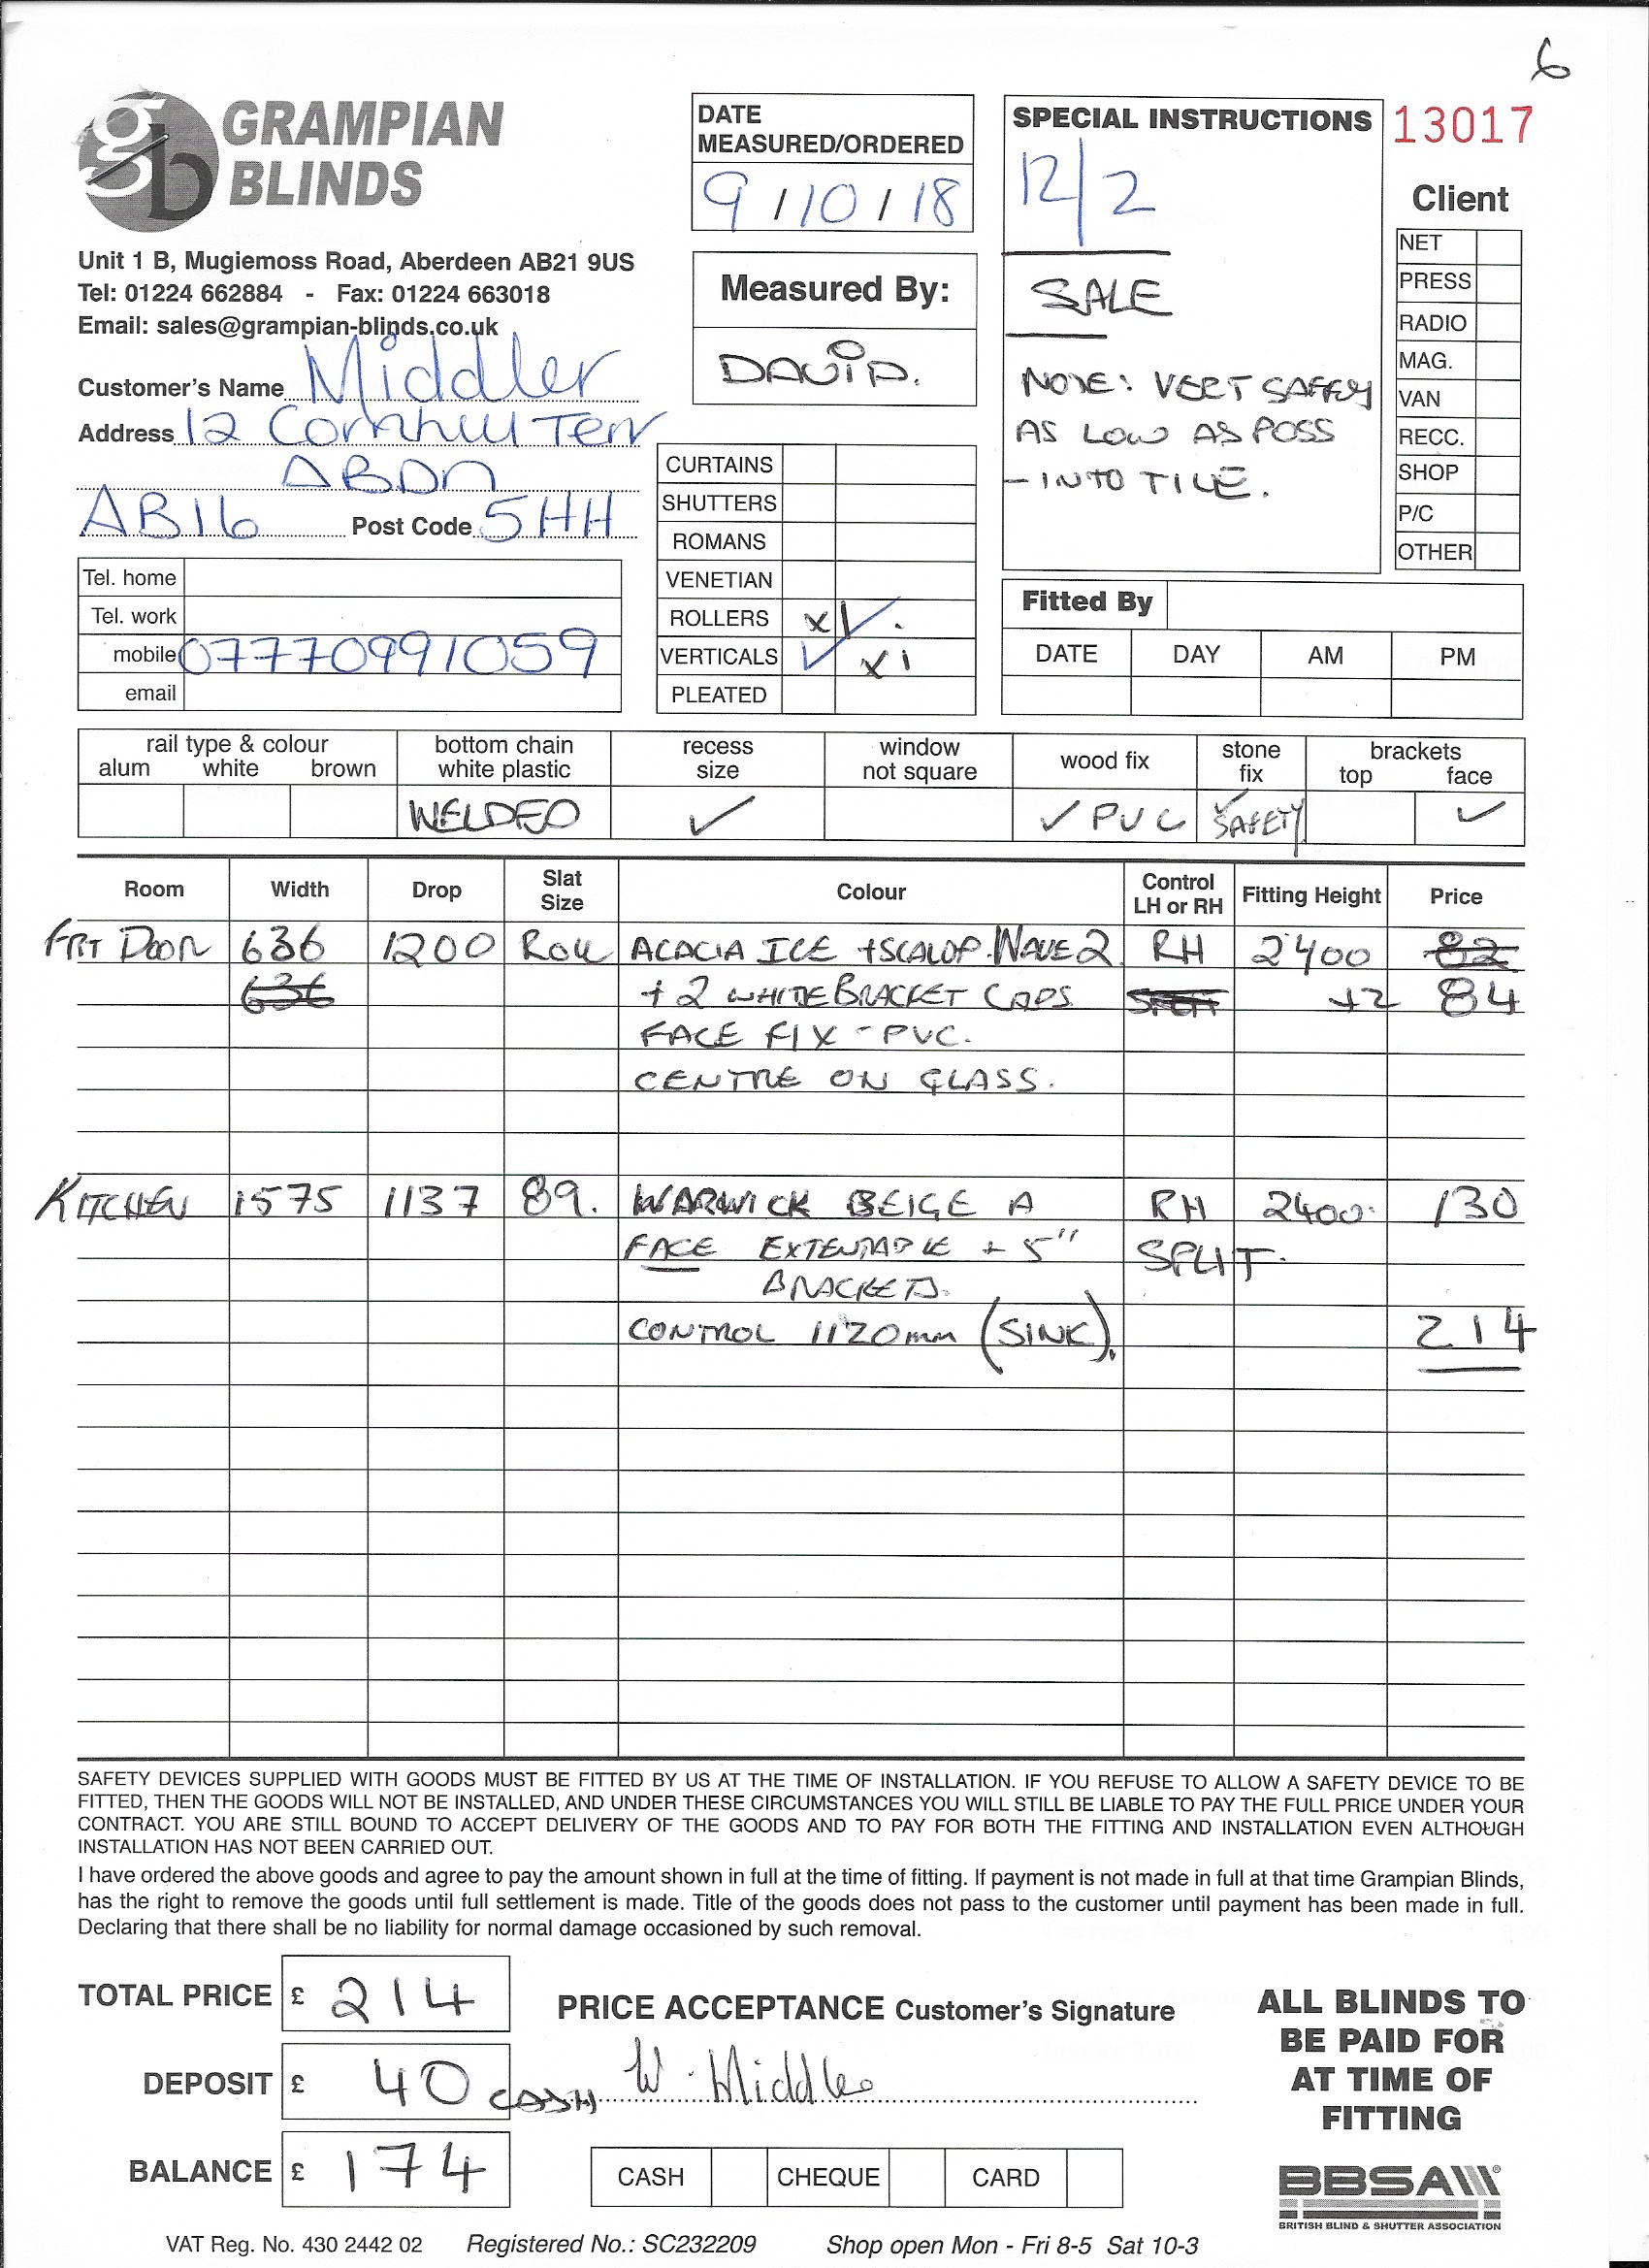 6
GRAMPIAN
BLINDS
Unit 1 B, Mugiemoss Road, Aberdeen AB21 9US
Tel: 01224 662884 - Fax: 01224 663018
Email: sales@grampian-blinds.co.uk
Customer's Name Middler
Address 12 Cornhill Terr
ABDN
AB16 Post Code 5HH
Tel. home
Tel. work
mobile 07770991059
email
DATE
MEASURED/ORDERED
9 / 10 / 18
Measured By:
DAVID.
CURTAINS
SHUTTERS
ROMANS
VENETIAN
ROLLERS x1 ✓.
VERTICALS ✓ x1
PLEATED
SPECIAL INSTRUCTIONS
12/2
SALE
NOTE: VERT SAFETY
AS LOW AS POSS
- INTO TILE.
13017
Client
NET
PRESS
RADIO
MAG.
VAN
RECC.
SHOP
P/C
OTHER
Fitted By
DATE DAY AM PM
rail type & colour bottom chain recess window wood fix stone brackets
alum white brown white plastic size not square fix top face
WELDED ✓ ✓ PVC ✓ SAFETY ✓
Room Width Drop Slat Size Colour Control LH or RH Fitting Height Price
FRT DOOR 636 1200 ROLL ACACIA ICE + SCALOP. WAVE 2 RH 2400 82
636 + 2 WHITE BRACKET CAPS +2 84
FACE FIX - PVC.
CENTRE ON GLASS.
KITCHEN 1575 1137 89. WARWICK BEIGE A RH 2400 130
FACE EXTENDABLE + 5" SPLIT.
BRACKETS.
CONTROL 1120mm (SINK). 214
SAFETY DEVICES SUPPLIED WITH GOODS MUST BE FITTED BY US AT THE TIME OF INSTALLATION. IF YOU REFUSE TO ALLOW A SAFETY DEVICE TO BE
FITTED, THEN THE GOODS WILL NOT BE INSTALLED, AND UNDER THESE CIRCUMSTANCES YOU WILL STILL BE LIABLE TO PAY THE FULL PRICE UNDER YOUR
CONTRACT. YOU ARE STILL BOUND TO ACCEPT DELIVERY OF THE GOODS AND TO PAY FOR BOTH THE FITTING AND INSTALLATION EVEN ALTHOUGH
INSTALLATION HAS NOT BEEN CARRIED OUT.
I have ordered the above goods and agree to pay the amount shown in full at the time of fitting. If payment is not made in full at that time Grampian Blinds,
has the right to remove the goods until full settlement is made. Title of the goods does not pass to the customer until payment has been made in full.
Declaring that there shall be no liability for normal damage occasioned by such removal.
TOTAL PRICE £ 214
DEPOSIT £ 40 CASH
BALANCE £ 174
PRICE ACCEPTANCE Customer's Signature
W. Middler
CASH CHEQUE CARD
ALL BLINDS TO
BE PAID FOR
AT TIME OF
FITTING
BBSA
BRITISH BLIND & SHUTTER ASSOCIATION
VAT Reg. No. 430 2442 02 Registered No.: SC232209 Shop open Mon - Fri 8-5 Sat 10-3